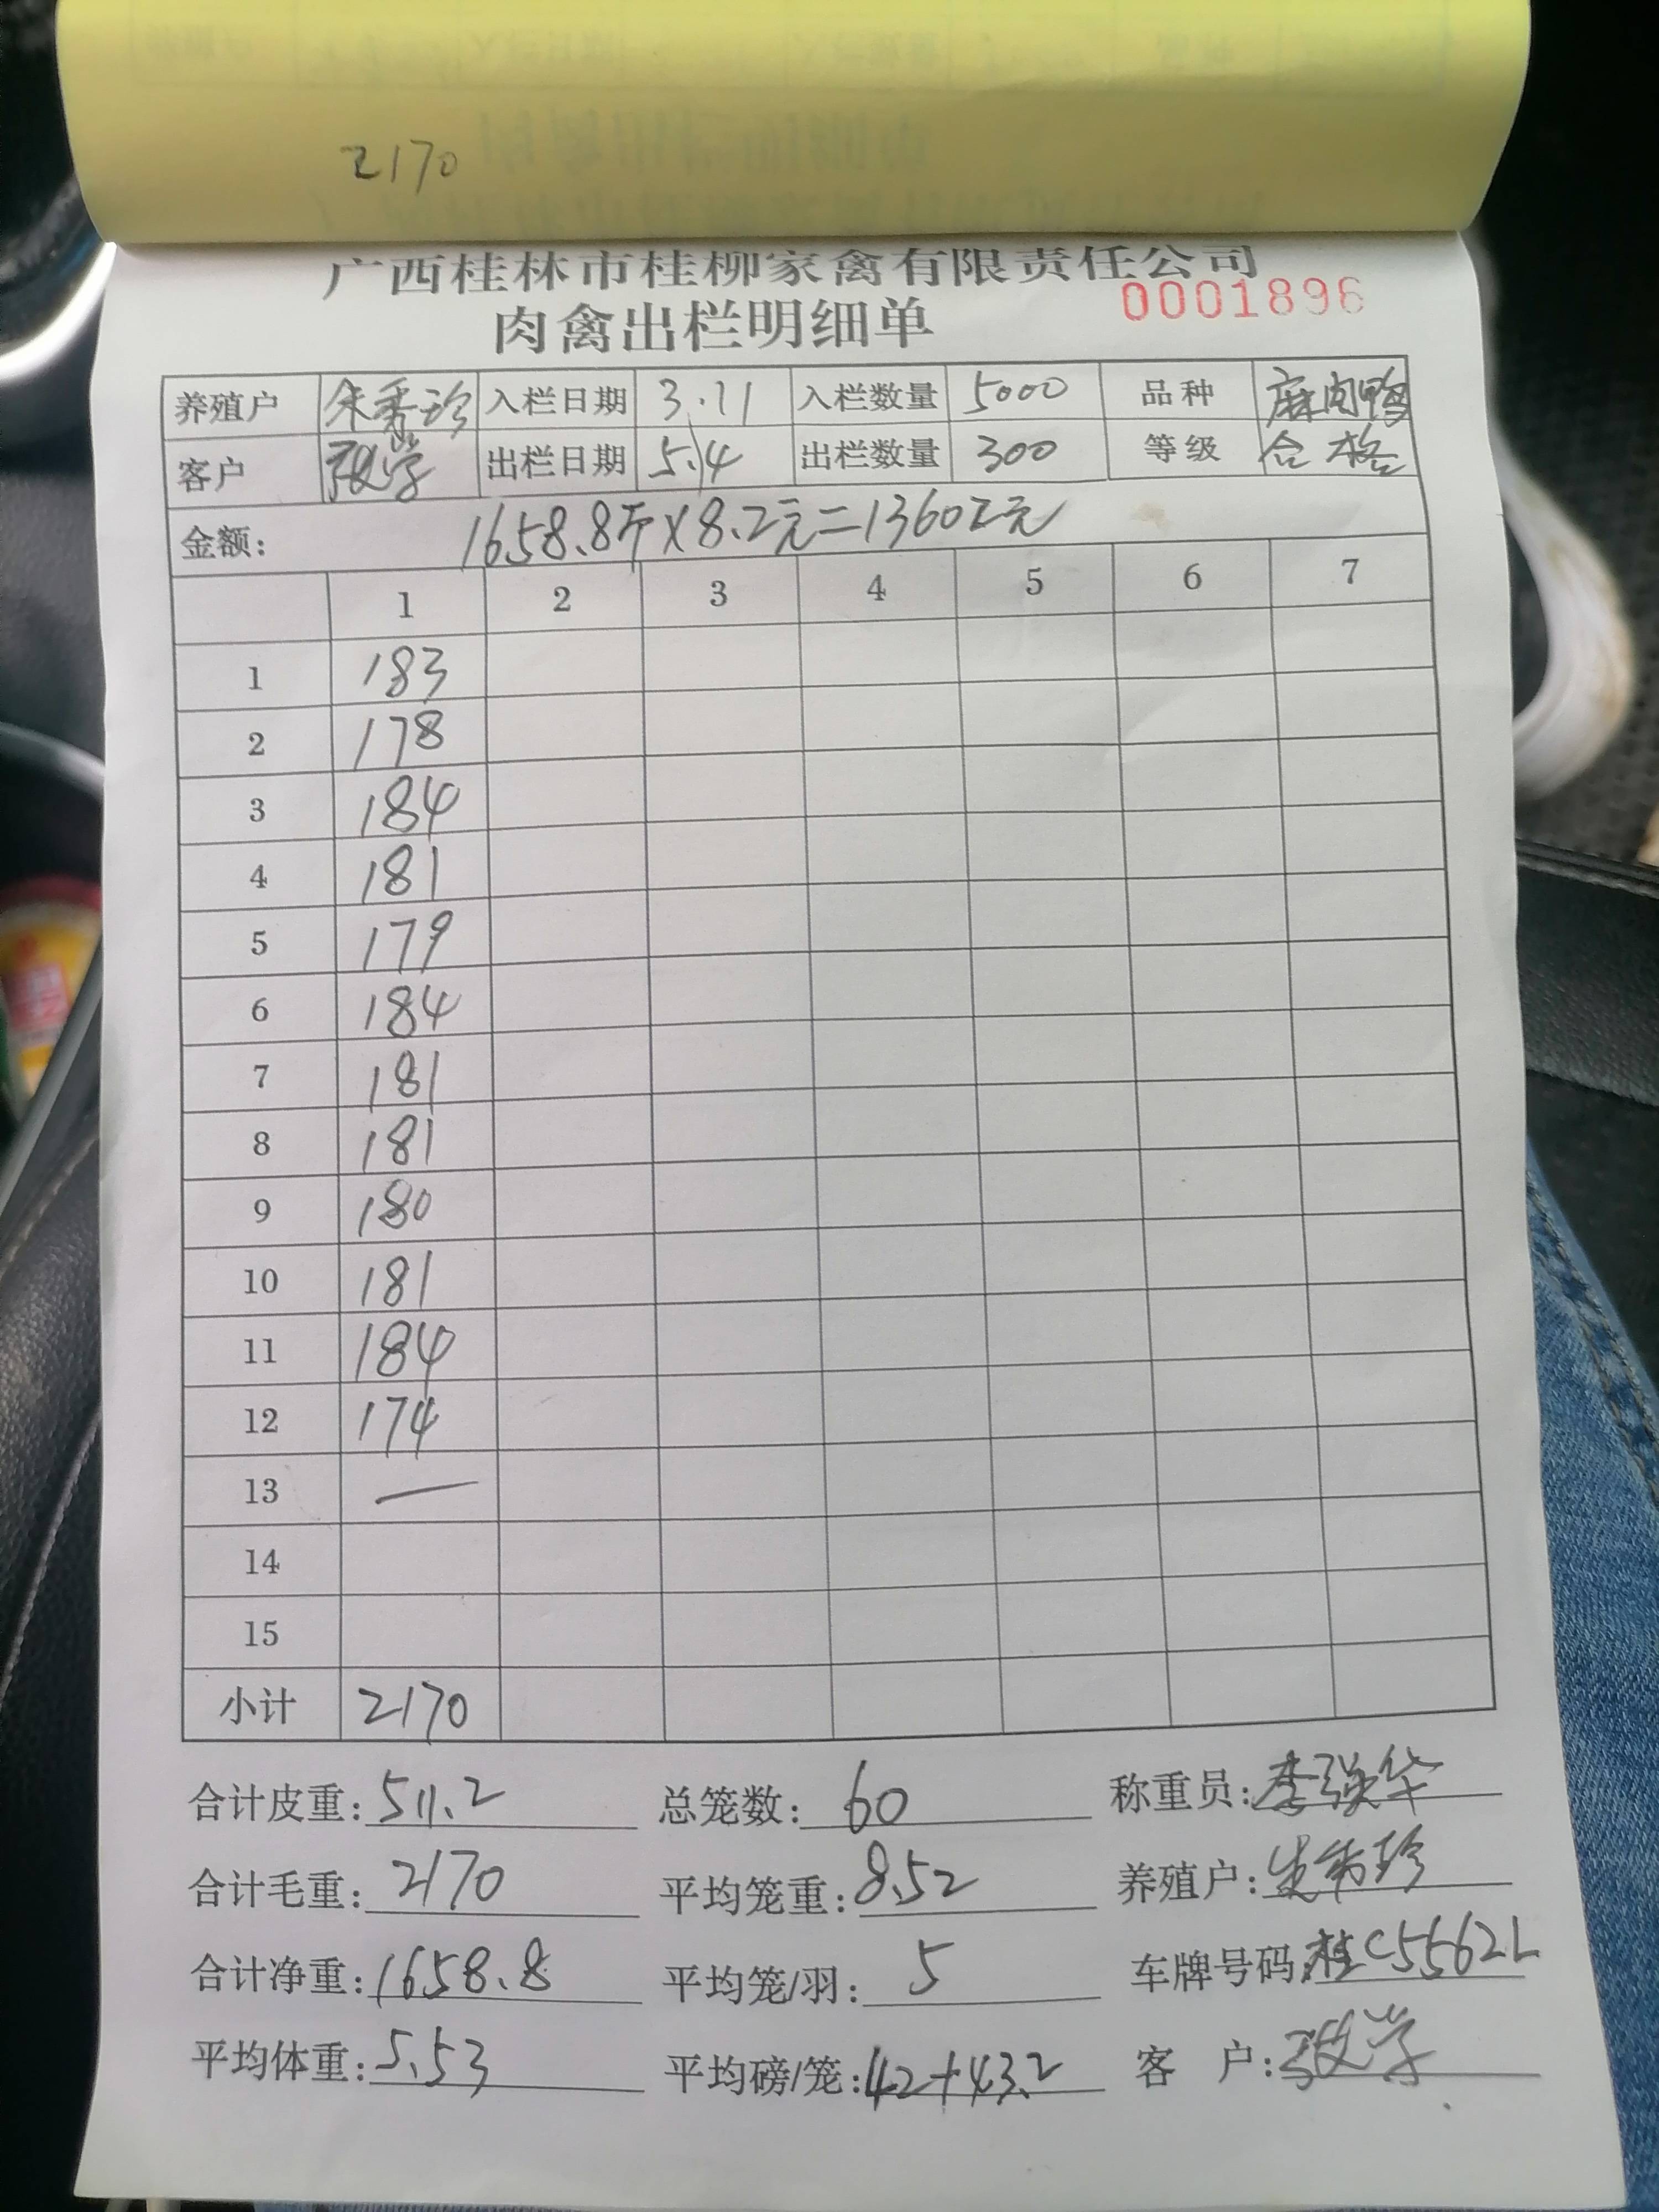 2170
广西桂林市桂柳家禽有限责任公司
肉禽出栏明细单 0001896
养殖户 朱秀珍 入栏日期 3.11 入栏数量 5000 品种 麻肉鸭
客户 出栏日期 5.14 出栏数量 300 等级 合格
金额: 1658.8斤×8.2元=13602元
1 2 3 4 5 6 7
1 183
2 178
3 184
4 181
5 179
6 184
7 181
8 181
9 180
10 181
11 184
12 174
13 —
14
15
小计 2170
合计皮重: 511.2 总笼数: 60 称重员: 李强华
合计毛重: 2170 平均笼重: 8.52 养殖户: 朱秀珍
合计净重: 1658.8 平均笼/羽: 5 车牌号码: 桂C5562L
平均体重: 5.53 平均磅/笼: 42+43.2 客 户: